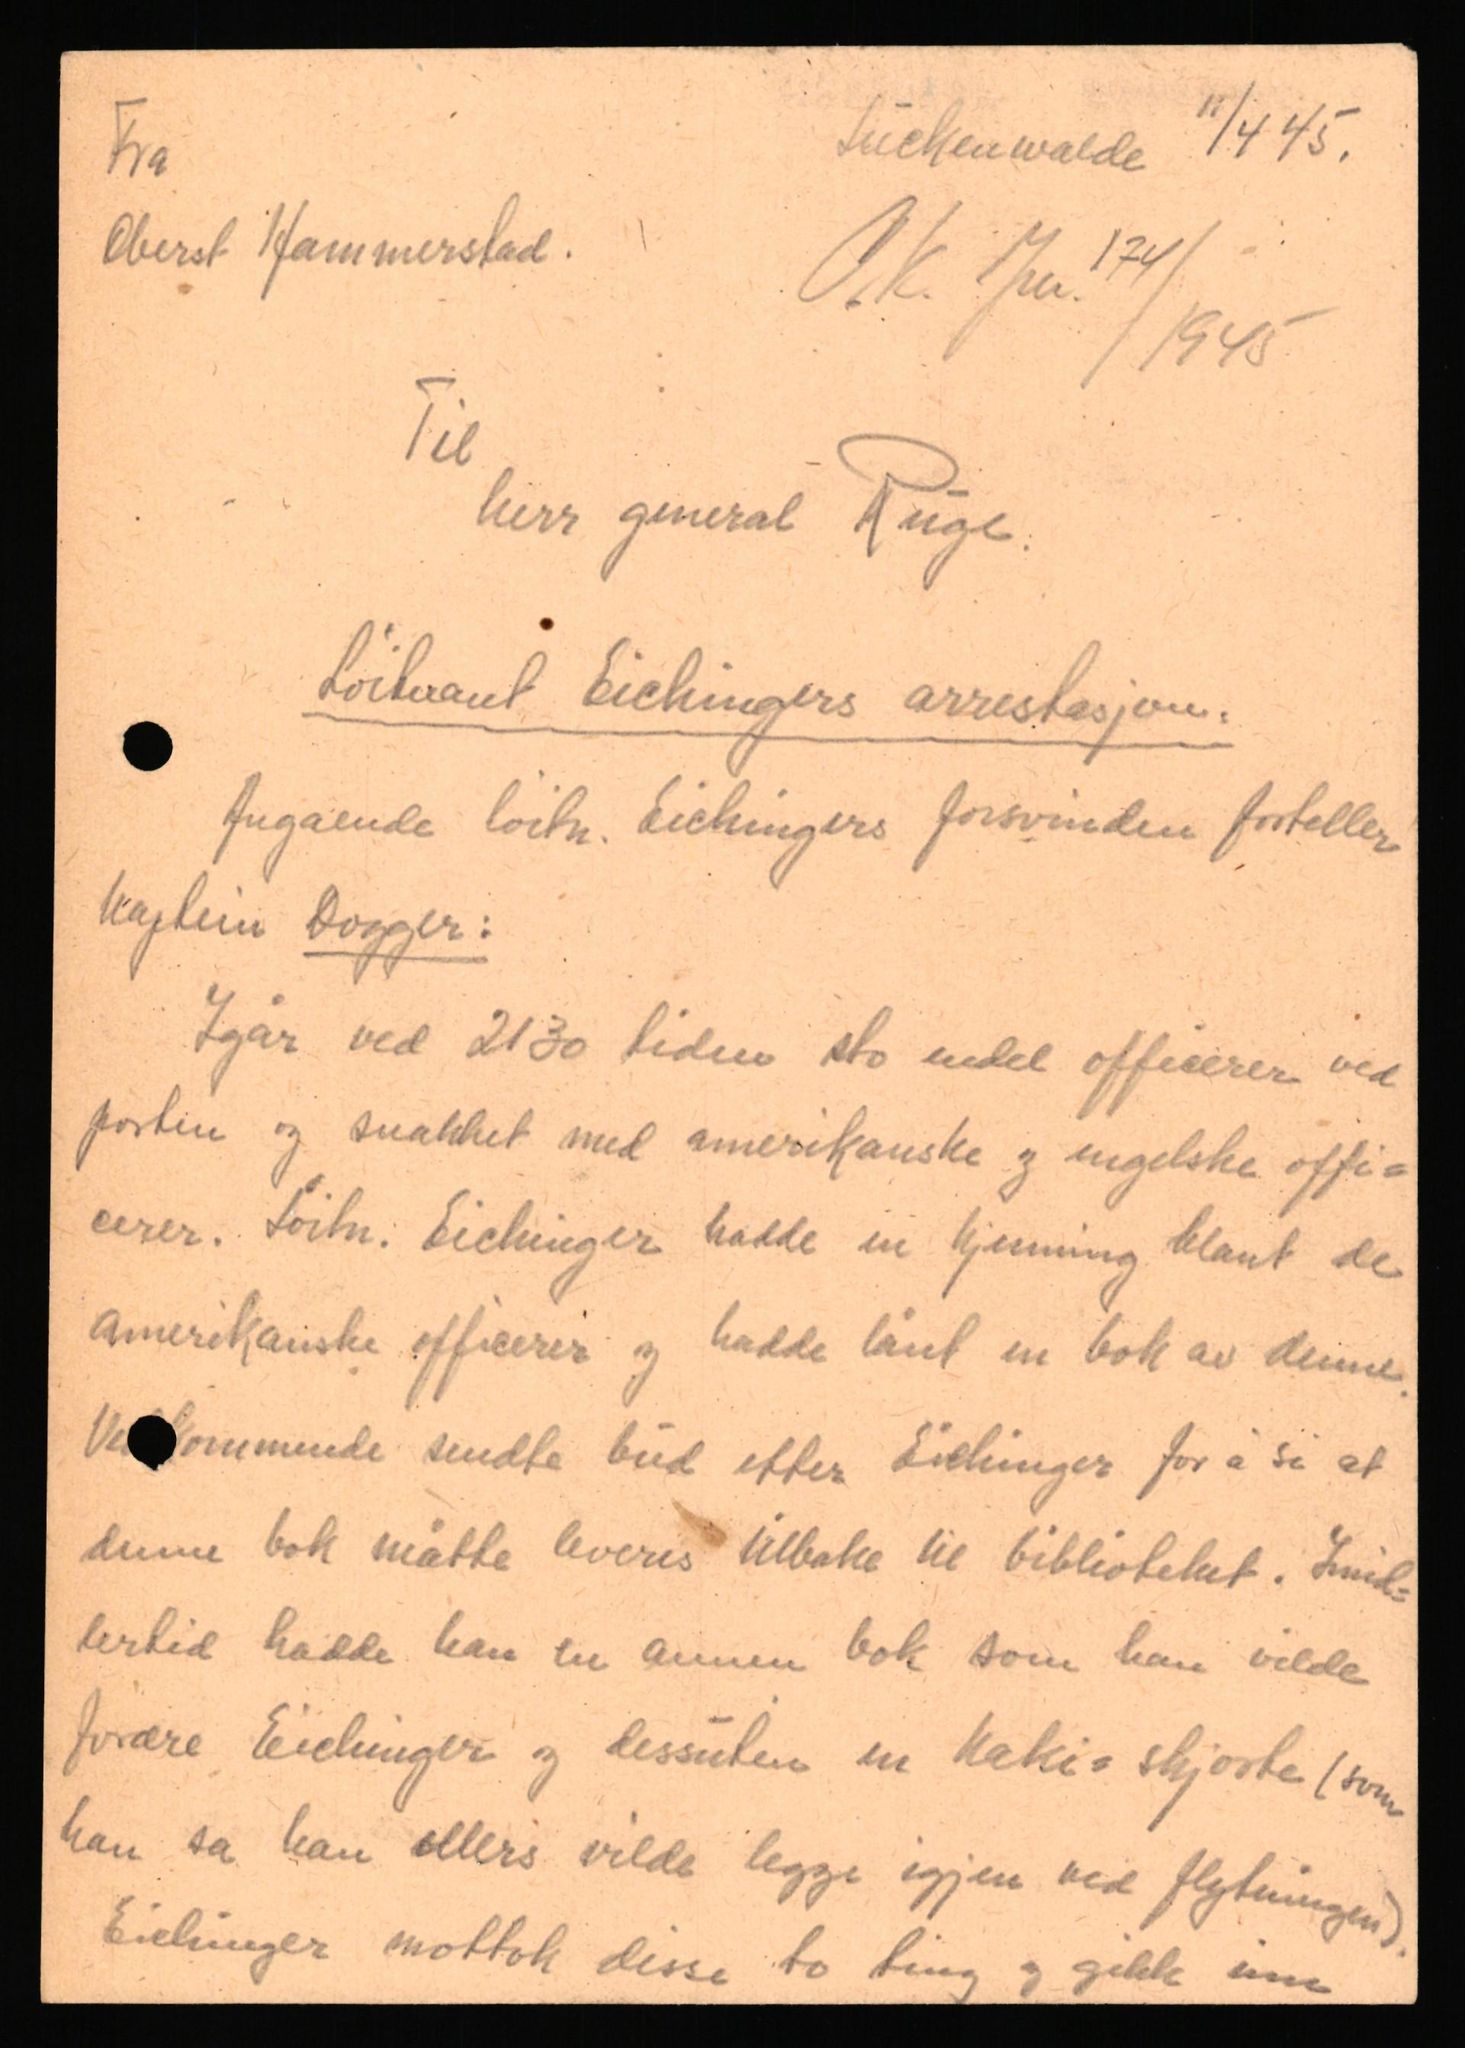 Fra
Oberst Hammerstad.
Luckenwalde 11/4 45.
O.K. Jnr. 174/1945
Til
herr general Ruge.
Löitnant Eichingers arrestasjon.
Angaaende löitn. Eichingers forsvinden forteller
kaptein Dogger:
Igår ved 2130 tiden sto endel officerer ved
porten og snakket med amerikanske og engelske offi=
cerer. Löitn. Eichinger hadde en kjenning blant de
amerikanske officerer og hadde lånt en bok av denne.
Vedkommende sendte bud etter Eichinger for å si at
denne bok måtte leveres tilbake til biblioteket. Imid=
lertid hadde han en annen bok som han vilde
forære Eichinger og dessuten en kaki=skjorte (som
han sa han ellers vilde legge igjen ved flytningen).
Eichinger mottok disse to ting og gikk inn